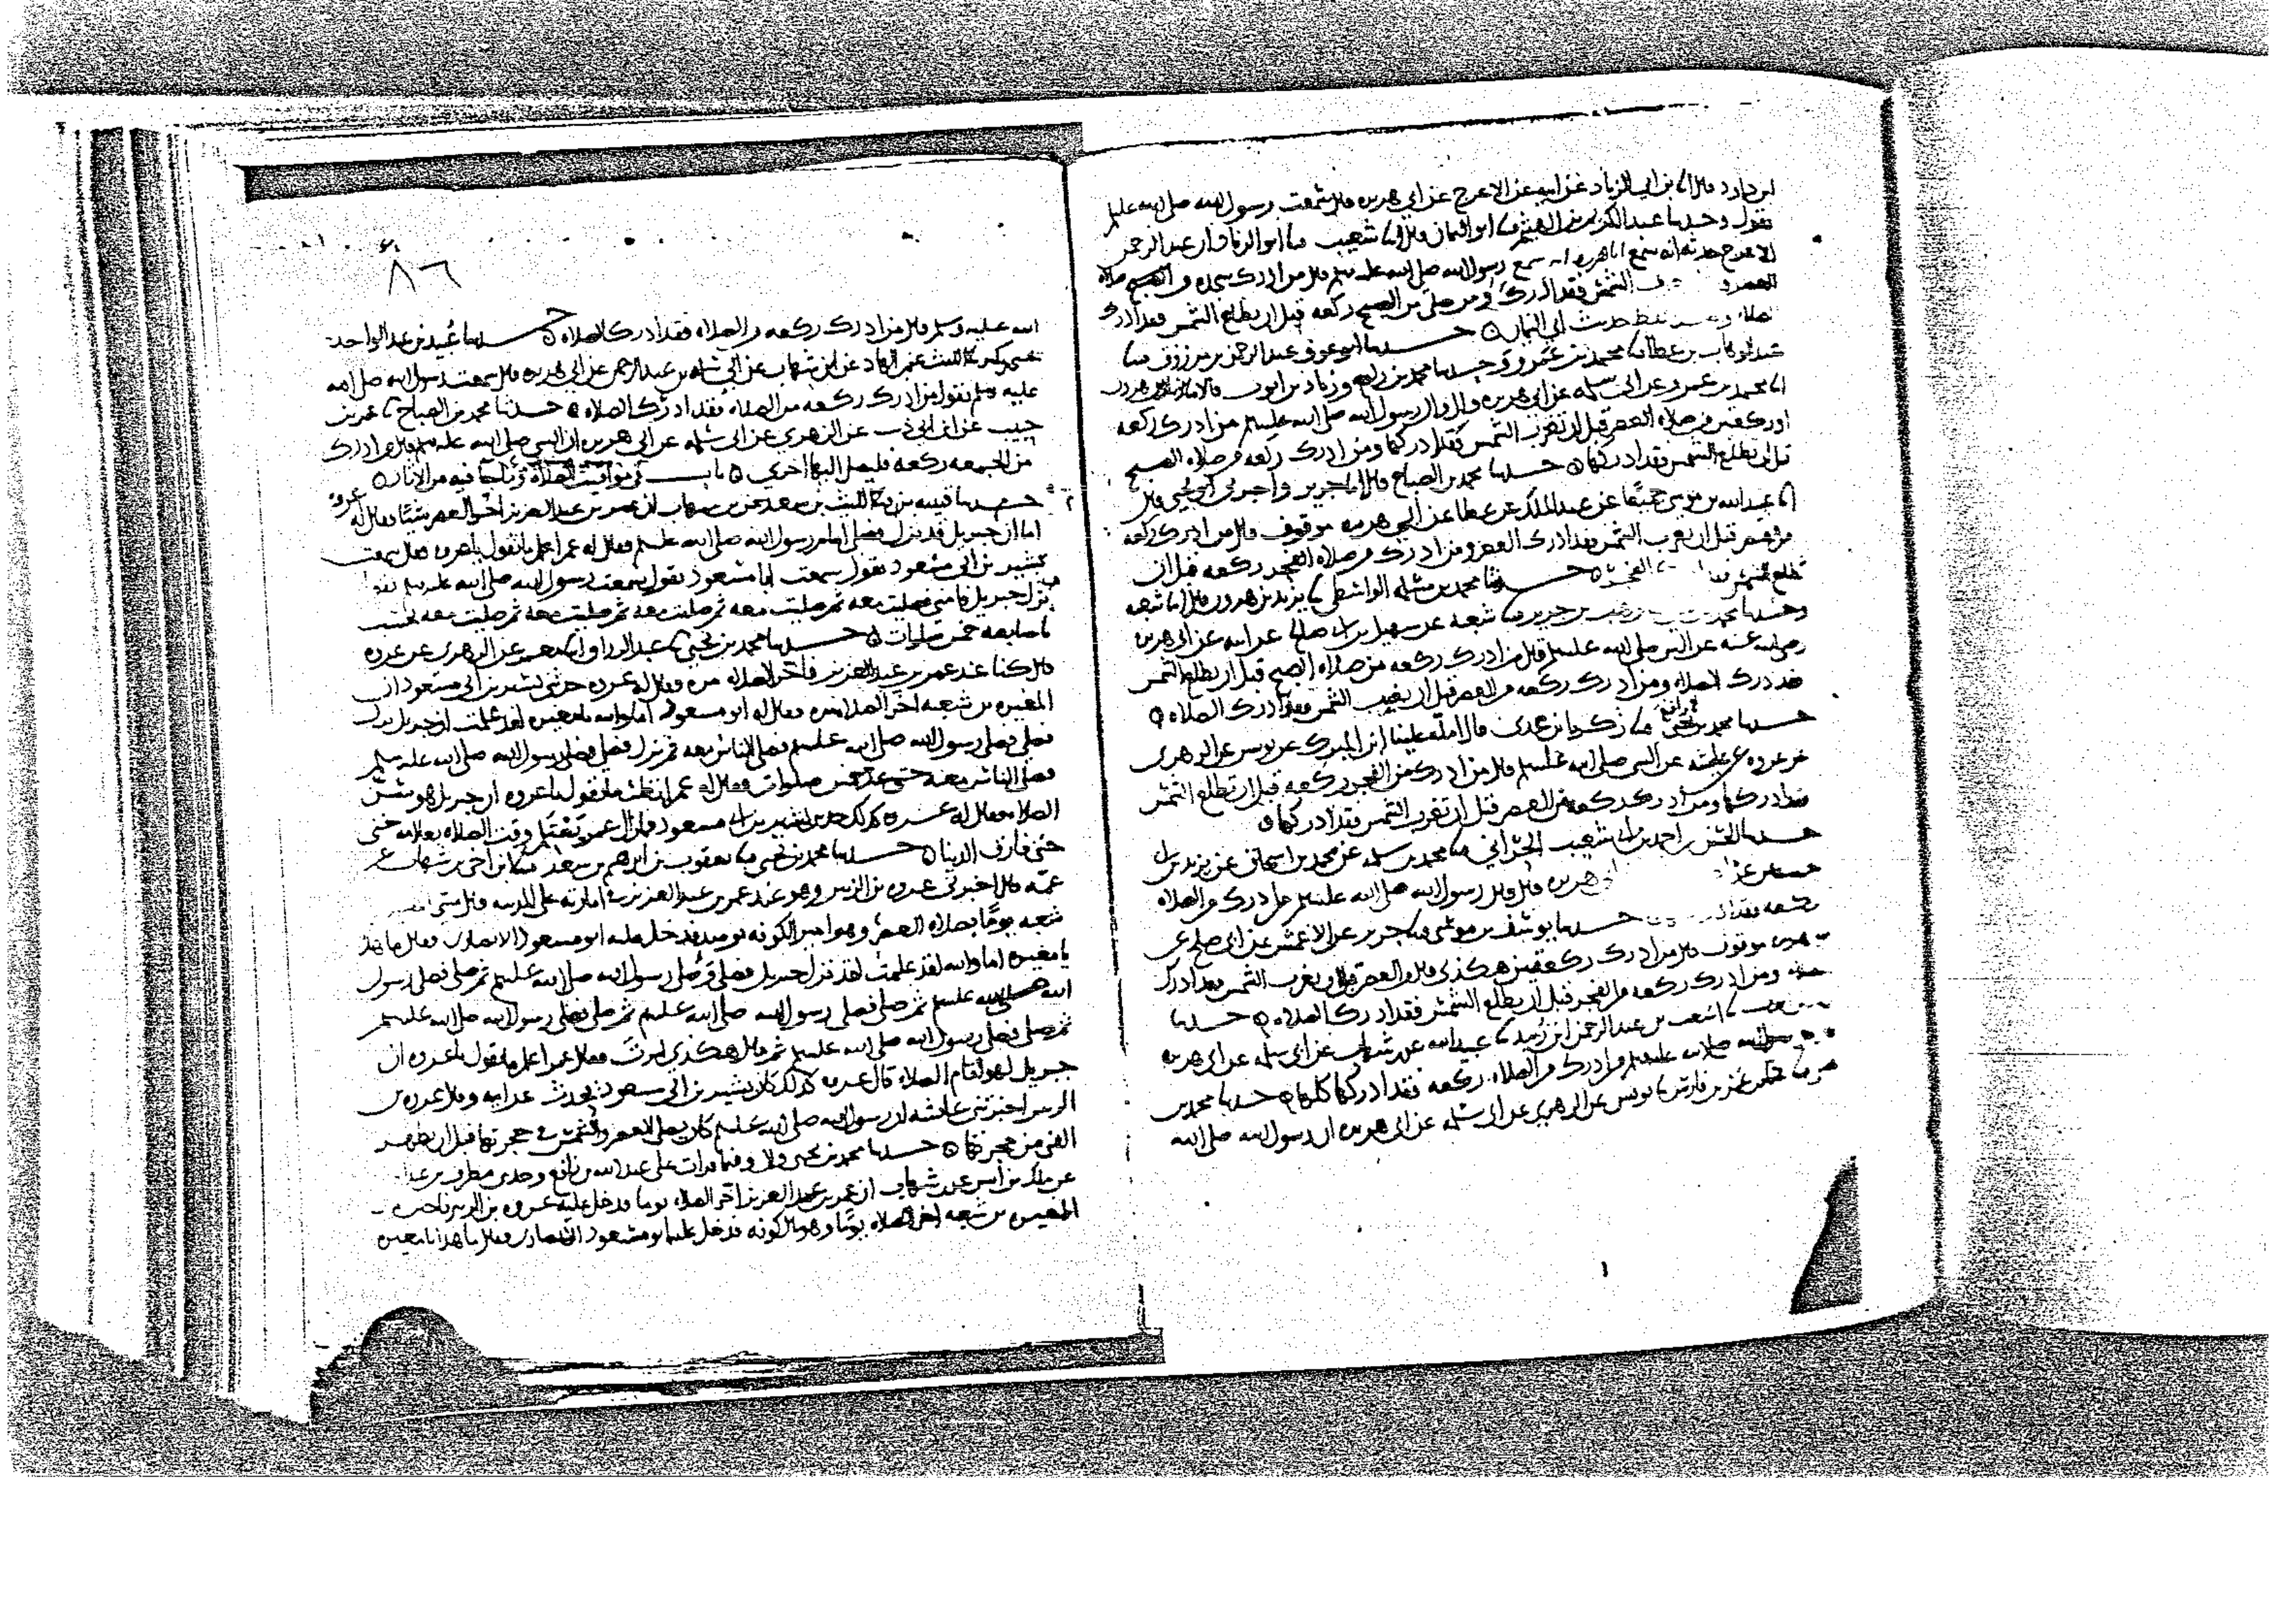 ابن داود قال انا ابن ابي الزناد عن ابيه عن الاعرج عن ابي هريره قال سمعت رسول الله صلى الله عليه
يقول وحدثنا عبد الكريم بن الهيثم ثنا ابو اليمان قال انا شعيب ثنا ابو الزناد ان عبد الرحمن
الاعرج حدثه انه سمع ابا هريره انه سمع رسول الله صلى الله عليه وسلم قال من ادرك سجده من صلاه
العصر الشمس فقد ادرك ومن صلى من الصبح ركعه قبل ان تطلع الشمس فقد ادرك
لفظ حديث ابي اليمان حدثنا ابو عوف عبد الرحمن بن مرزوق ثنا
عبد الوهاب بن عطا انا محمد بن عمرو وحدثنا محمد بن وزياد بن ايوب قالا
انا محمد بن عمرو عن ابي سلمه عن ابي هريره قال قال رسول الله صلى الله عليه وسلم من ادرك ركعه
او ركعتين من صلاه العصر قبل ان تغرب الشمس فقد ادركها ومن ادرك ركعه من صلاه الصبح
قبل ان تطلع الشمس فقد ادركها حدثنا محمد بن الصباح قال انا جرير
عن عبد الملك عن عطا عن ابي هريره موقوف قال من ادرك ركعه
من العصر قبل ان تغرب الشمس فقد ادرك العصر ومن ادرك من صلاه الفجر ركعه قبل ان
تطلع الشمس فقد الفجر حدثنا محمد بن مسلمه الواسطي ثنا يزيد بن هرون قال انا شعبه
وحدثنا محمد بن جرير ثنا شعبه عن سهيل بن ابي صالح عن ابيه عن ابي هريره
رضي الله عنه عن النبي صلى الله عليه وسلم قال من ادرك ركعه من صلاه الصبح قبل ان تطلع الشمس
فقد ادرك الصلاه ومن ادرك ركعه من العصر قبل ان تغيب الشمس فقد ادرك الصلاه
حدثنا محمد بن يحيى ثنا زكريا بن عدي قال املا علينا ابن المبارك عن يونس عن الزهري
عن عروه عن عايشه عن النبي صلى الله عليه وسلم قال من ادرك من الفجر ركعه قبل ان تطلع الشمس
فقد ادركها ومن ادرك ركعه من العصر قبل ان تغرب الشمس فقد ادركها
حدثنا الحسن بن احمد بن ابي شعيب الحراني ثنا محمد بن سلمه عن محمد بن اسحاق عن يزيد بن
هريره قال قال رسول الله صلى الله عليه وسلم من ادرك من الصلاه
ركعه فقد حدثنا يوسف بن موسى ثنا جرير عن الاعمش عن ابي صالح عن
هريره موقوف قال من ادرك ركعتين هكذى قال من العصر قبل ان تغرب الشمس فقد ادرك
ومن ادرك ركعه من الفجر قبل ان تطلع الشمس فقد ادرك الصلاه حدثنا
ثنا اشعث بن عبد الرحمن ابن زبيد ثنا عبيد الله عن ابن شهاب عن ابي سلمه عن ابي هريره
رسول الله صلى الله عليه وسلم من ادرك من الصلاه ركعه فقد ادركها كلها حدثنا محمد بن
عثمن بن عمر بن فارس ثنا يونس عن الزهري عن ابي سلمه عن ابي هريره ان رسول الله صلى الله
٨٦
الله عليه وسلم قال من ادرك ركعه من الصلاه فقد ادرك الصلاه حدثنا عبيد بن عبد الواحد
ثنا الليث عن ابن الهاد عن ابن شهاب عن ابي سلمه بن عبد الرحمن عن ابي هريره قال سمعت رسول الله صلى الله
عليه وسلم يقول من ادرك ركعه من الصلاه فقد ادرك الصلاه حدثنا محمد بن الصباح ثنا عمر بن
حبيب عن ابن ابي ذيب عن الزهري عن ابي سلمه عن ابي هريره ان النبي صلى الله عليه وسلم قال من ادرك
من الجمعه ركعه فليصل اليها اخرى باب في مواقيت الصلاه وما جا فيه من الاثار
حدثنا قتيبه ثنا الليث بن سعد عن بن شهاب ان عمر بن عبد العزيز اخر العصر شيئا فقال له عروه
اما ان جبريل قد نزل فصلى امام رسول الله صلى الله عليه وسلم فقال له عمر اعلم ما تقول يا عروه فقال سمعت
بشير بن ابي مسعود يقول سمعت ابا مسعود يقول سمعت رسول الله صلى الله عليه وسلم يقول
نزل جبريل فامني فصليت معه ثم صليت معه ثم صليت معه ثم صليت معه ثم صليت معه يحسب
باصابعه خمس صلوات حدثنا محمد بن يحيى ثنا عبد الرزاق انا معمر عن الزهري عن عروه
قال كنا عند عمر بن عبد العزيز فاخر الصلاه مره فقال له عروه حدثني بشير بن ابي مسعود ان
المغيره بن شعبه اخر الصلاه مره فقال له ابو مسعود اما والله يا مغيره لقد علمت ان جبريل نزل
فصلى فصلى رسول الله صلى الله عليه وسلم فصلى الناس معه ثم نزل فصلى فصلى رسول الله صلى الله عليه وسلم
فصلى الناس معه حتى عد خمس صلوات فقال له عمر انظر ما تقول يا عروه ان جبريل هو سن
الصلاه فقال له عروه كذلك حدثني بشير بن ابي مسعود فما زال عمر يعتلم وقت الصلاه بعلامه حتى
حتى فارق الدنيا حدثنا محمد بن يحيى ثنا يعقوب بن ابرهيم بن سعد ثنا ابن اخي بن شهاب عن
عمه قال اخبرني عروه بن الزبير وهو عند عمر بن عبد العزيز في امارته على المدينه قال
شعبه يوما بصلاه العصر وهو امير الكوفه يوميد فدخل عليه ابو مسعود الانصاري فقال ما هذا
يا مغيره اما والله لقد علمت لقد نزل جبريل فصلى فصلى رسول الله صلى الله عليه وسلم ثم صلى فصلى رسول
الله صلى الله عليه وسلم ثم صلى فصلى رسول الله صلى الله عليه وسلم ثم صلى فصلى رسول الله صلى الله عليه وسلم
ثم صلى فصلى رسول الله صلى الله عليه وسلم ثم قال هكذى امرت فقال عمر اعلم ما تقول يا عروه ان
جبريل لهو اقام الصلاه قال عروه كذلك كان بشير بن ابي مسعود يحدث عن ابيه وقال عروه بن
الزبير اخبرتني عائشه ان رسول الله صلى الله عليه وسلم كان يصلي العصر والشمس في حجرتها قبل ان يظهر
الفي من حجرتها حدثنا محمد بن يحيى قال وفيما قرات على عبد الله بن نافع وحدثني مطرف بن عبد
عن ملك بن انس عن بن شهاب ان عمر بن عبد العزيز اخر الصلاه يوما فدخل عليه عروه بن الزبير فاخبره
المغيره بن شعبه اخر الصلاه يوما وهو بالكوفه فدخل عليه ابو مسعود الانصاري فقال ما هذا يا مغيره